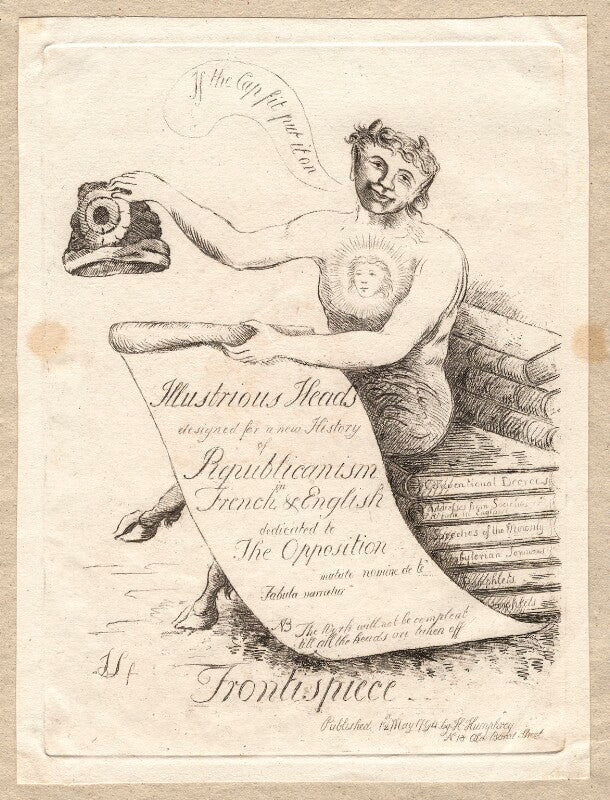 If the Cap fit put it on
Illustrious Heads
designed for a new History
of
Republicanism
in
French & English
dedicated to
The Opposition
mutato nomine de te
Fabula narratur"
NB The Work will not be compleat
till all the heads are taken off
Conventional Decrees
Addresses from Societies
in England
Speeches of the Minority
Presbyterian Sermons
Pamphlets
Pamphlets
JS f
Frontispiece
Published 12 May 1794 by H Humphrey
N 18 Old Bond Street